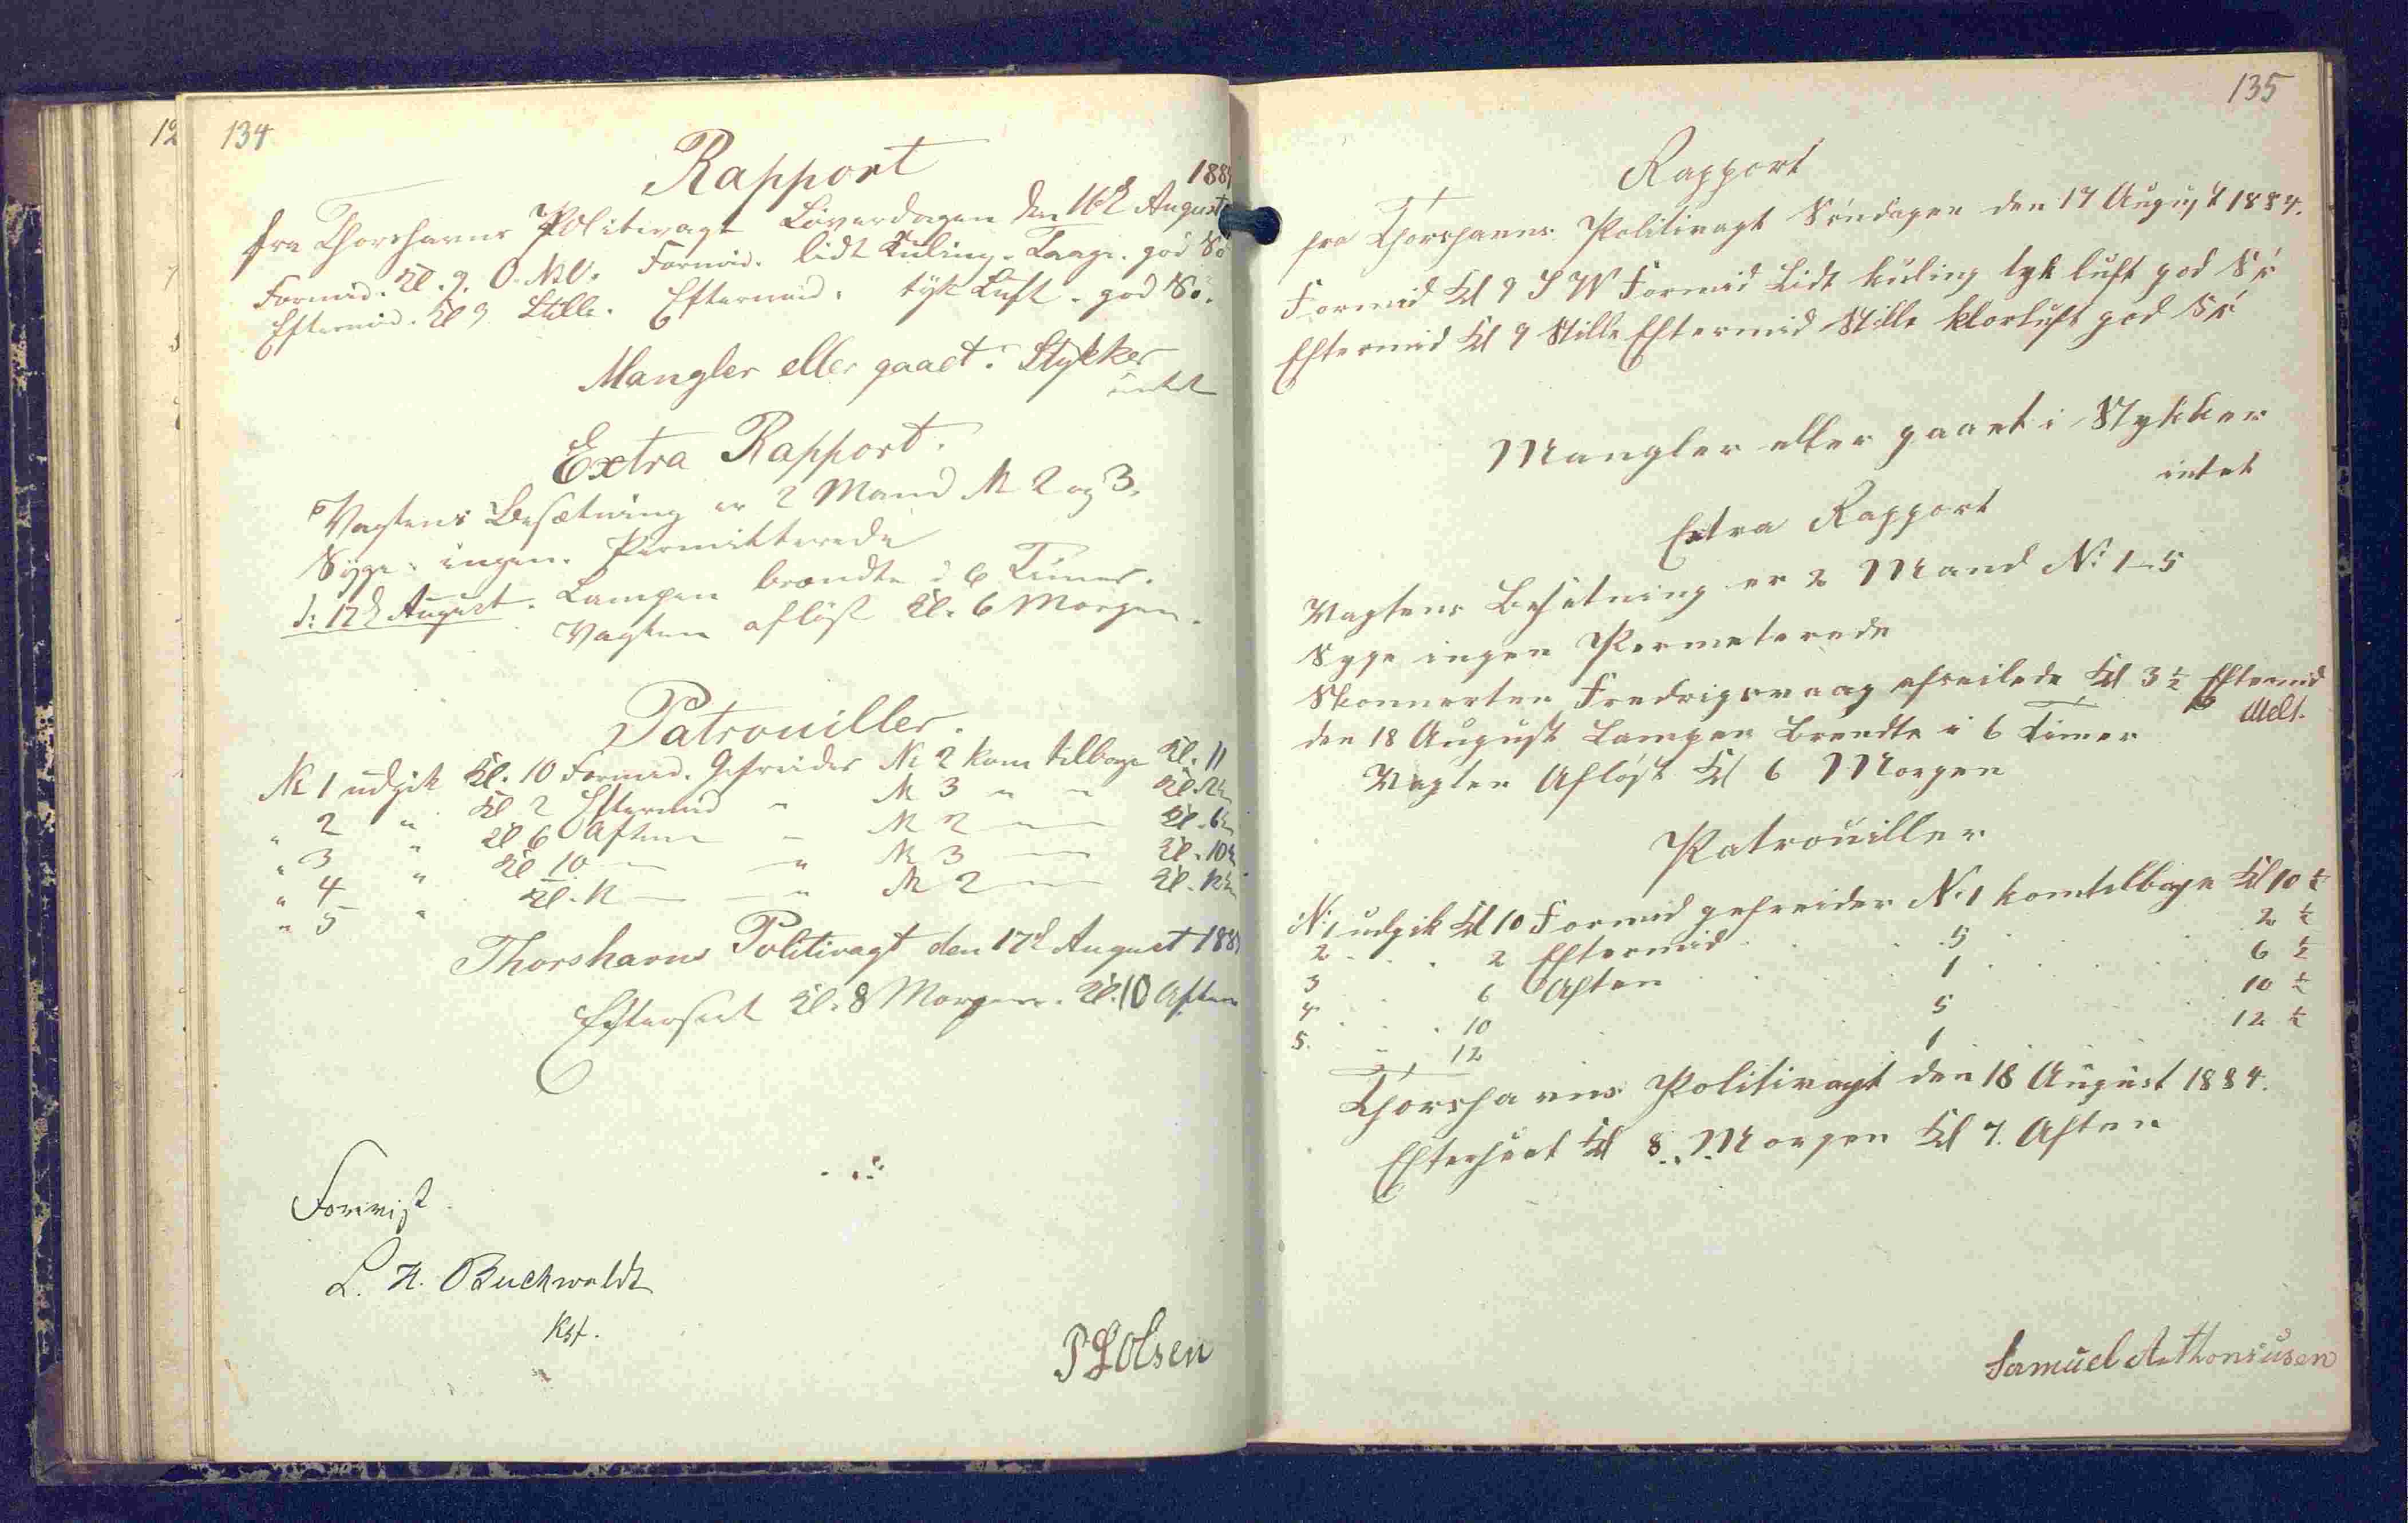 134
Rapport
1884
fra Thorshavns Politivagt Löverdagen den 16d August
Formid. Kl. 9. O. Formid. lidt Kuling. Taage. god Sö
Eftermid. Kl 9 Stille. Eftermid. tyk Luft. god Sö.
Mangler eller gaaet i Stykker
intet
Extra Rapport.
Vagtens Besætning er 2 Mand № 2 og 3.
Syge ingen. Permitterede
d: 17d August. Lampen brændte i 6 Timer.
Vagten aflöst Kl. 6 Morgen.
Patrouiller.
№ 1 udgik Kl. 10 Formid. Gefreider № 2 kom tilbage Kl. 11
" 2 " Kl 2 Eftermid " № 3 " " Kl. 2½
" 3 " Kl 6 Aften " № 2 — Kl. 6½
" 4 " Kl 10 — " № 3 — Kl. 10½
" 5 " Kl. 12 — " № 2 — Kl. 12½
Thorshavns Politivagt den 17d August 1884
Efterseet Kl. 8 Morgen. Kl. 10 Aften
Forevist
L. H. Buchwaldt
Kst.
P Olsen
135
Rapport
fra Thorshavns Politivagt Söndagen den 17 August 1884.
Formid Kl 9 S W Formid Lidt kuling tyk luft god Sö
Eftermid Kl 9 Stille Eftermid Stille klarluft god Sö
Mangler eller gaaet i Stykker
intet
Extra Rapport
Vagtens Besetning er 2 Mand N: 1-5
Syge ingen Permeterede
Skonnerten Fredrigsvaag afseilede Kl 3½ Eftermid
den 18 August Lampen Brendte i 6 Timer
Vagten Aflöst Kl 6 Morgen
Patrouiller
N: 1 udgik Kl 10 Formid gefreider N: 1 kom tilbage Kl 10 ½
2 . . . 2 Eftermid . . . 5 . . . 2 ½
3 . . . 6 Aften . . . 1 . . . 6 ½
4 . . . 10 . . . 5 . . . 10 ½
5. . . 12 . . . 1 . . . 12 ½
Thorshavns Politivagt den 18 August 1884.
Efterseet Kl 8. Morgen Kl 7. Aften
Samuel A. Thonsusen